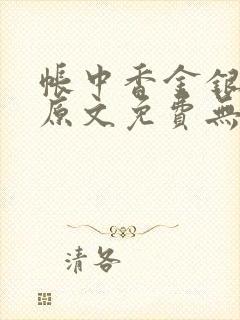 帳中香金銀
原文免費無
清各